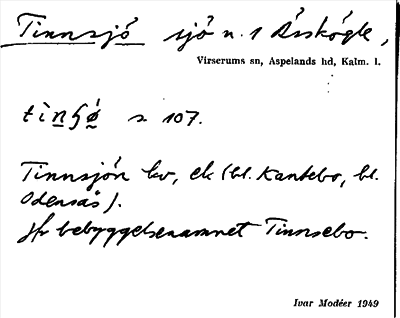 Tinnsjö sjö n. 1 Åsskögle,
Virserums sn, Aspelands hd, Kalm. l.
s. 107.
Tinnsjön kv, ek (bl. Kantebo, bl.
Odensås).
Jfr bebyggelsenamnet Tinnsebo.
Ivar Modéer 1949